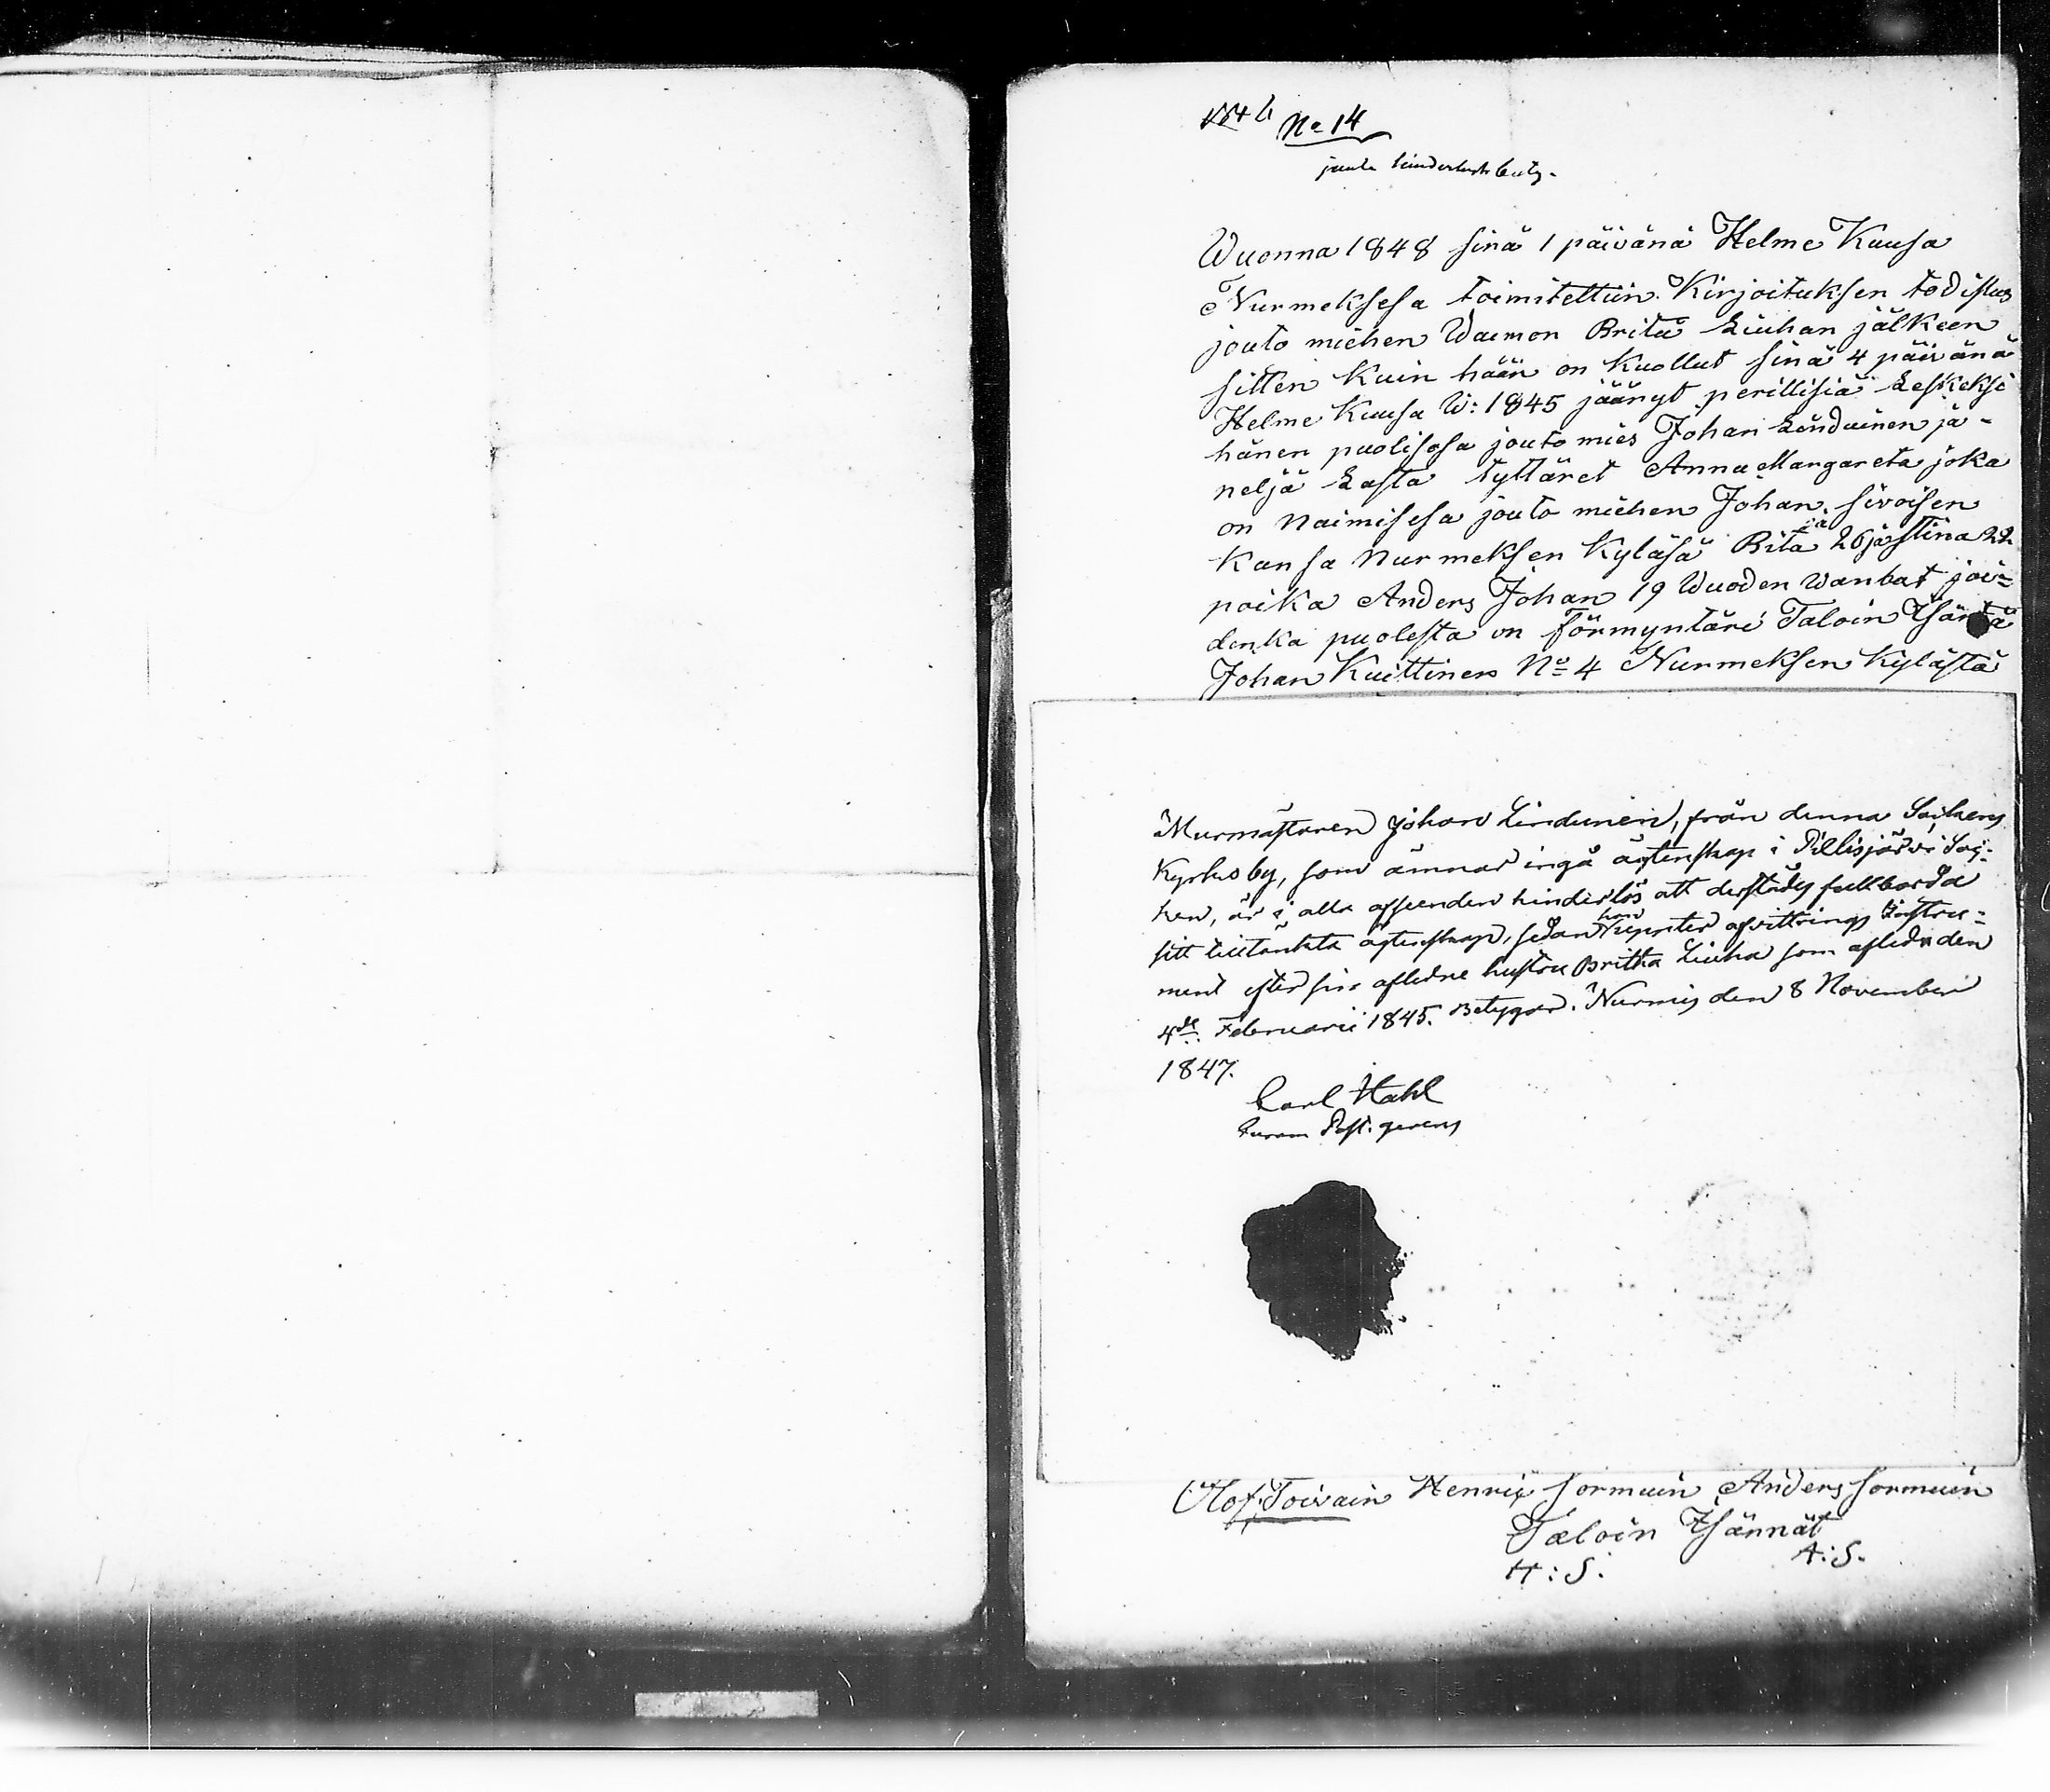 No 14
Wuonna 1848 sinä 1 päivänä Helme Kuusa
Nurmeksesa toimitettiin Kirjoituksen todistus
jouto miehen Waimon Brita Liuhan jälkeen
sitten Kuin hään on Kuollut sinä 4 päivänä
Helme Kuusa W: 1845 jäänyt perillisiä Leskeksi
hänen puolisosa jouto mies Johan Lindunen ja-
neljä Lasta tyttäret Anna Margareta joka
on Naimisesa jouto miehen Johan Sivoisen
Kansa Nurmeksen Kyläsä Rita 26 ja Stina 22
poika Anders Johan 19 Wuoden Wanbat joi=
denka puolesta on förmyntäri Taloin Isäntä
Johan Kuittinen No 4 Nurmeksen Kylästä
Murmästaren Johan Lindunen, från denna Sockens
Kyrkoby, som ämnar ingå ägtenskap i Pielisjärvi Soc=
ken, är i alla afseenden hinderlös att derstädes fullborda
sitt tilltänkta ägtenskap, sedan han afvittrings Instru=
ment efter sin aflidne hustru Britha Liuha som afled den
4de Februarii 1845. Betygar. Nurmis den 8 November
1847.
Carl Stahl
Past. gerens
Olof Toivain Henrig Sormuin Anders Sormuin
Taloin Isännät
H: S. A: S.